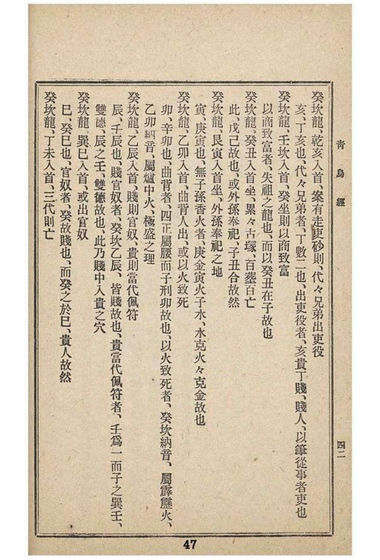 青烏經
四二
癸坎龍、乾亥入首、案有走更砂則、代々兄弟出更役
亥、丁亥也、代々兄弟者、丁數二也、出更役者、亥貴丁賤、賤人、以筆從事者更也
癸坎龍、壬坎入首、癸坐則以商致富
以商致富者、失祖之龍也、而以癸丑在子故也
癸坎龍、癸丑入首、丑坐、累々古塚、百塟百亡
此、戊己故也、或外孫奉祀、子丑合故然
癸坎龍、艮寅入首寅坐、外孫奉祀之地
寅、庚寅也、無子孫香火者、庚金寅火子水、水克火々克金故也
癸坎龍、乙卯入首、曲背人出、或以火致死
卯、辛卯也、曲背者、四正屬腰而子刑卯故也、以火致死者、癸坎納音、屬霹靂火、
乙卯納音、屬爐中火、極盛之理
癸坎龍、乙辰入首、賤則官奴、貴則當代佩符
辰、壬辰也、賤官奴者、癸坎乙辰、皆賤故也、貴當代佩符者、壬爲一而子之巽壬、
雙德、辰之壬、雙德故也、此乃賤中入貴之穴
癸坎龍、巽巳入首、或出官奴
巳、癸巳也、官奴者、癸故賤也、而癸之於巳、貴人故然
癸坎龍、丁未入首、三代則亡
47